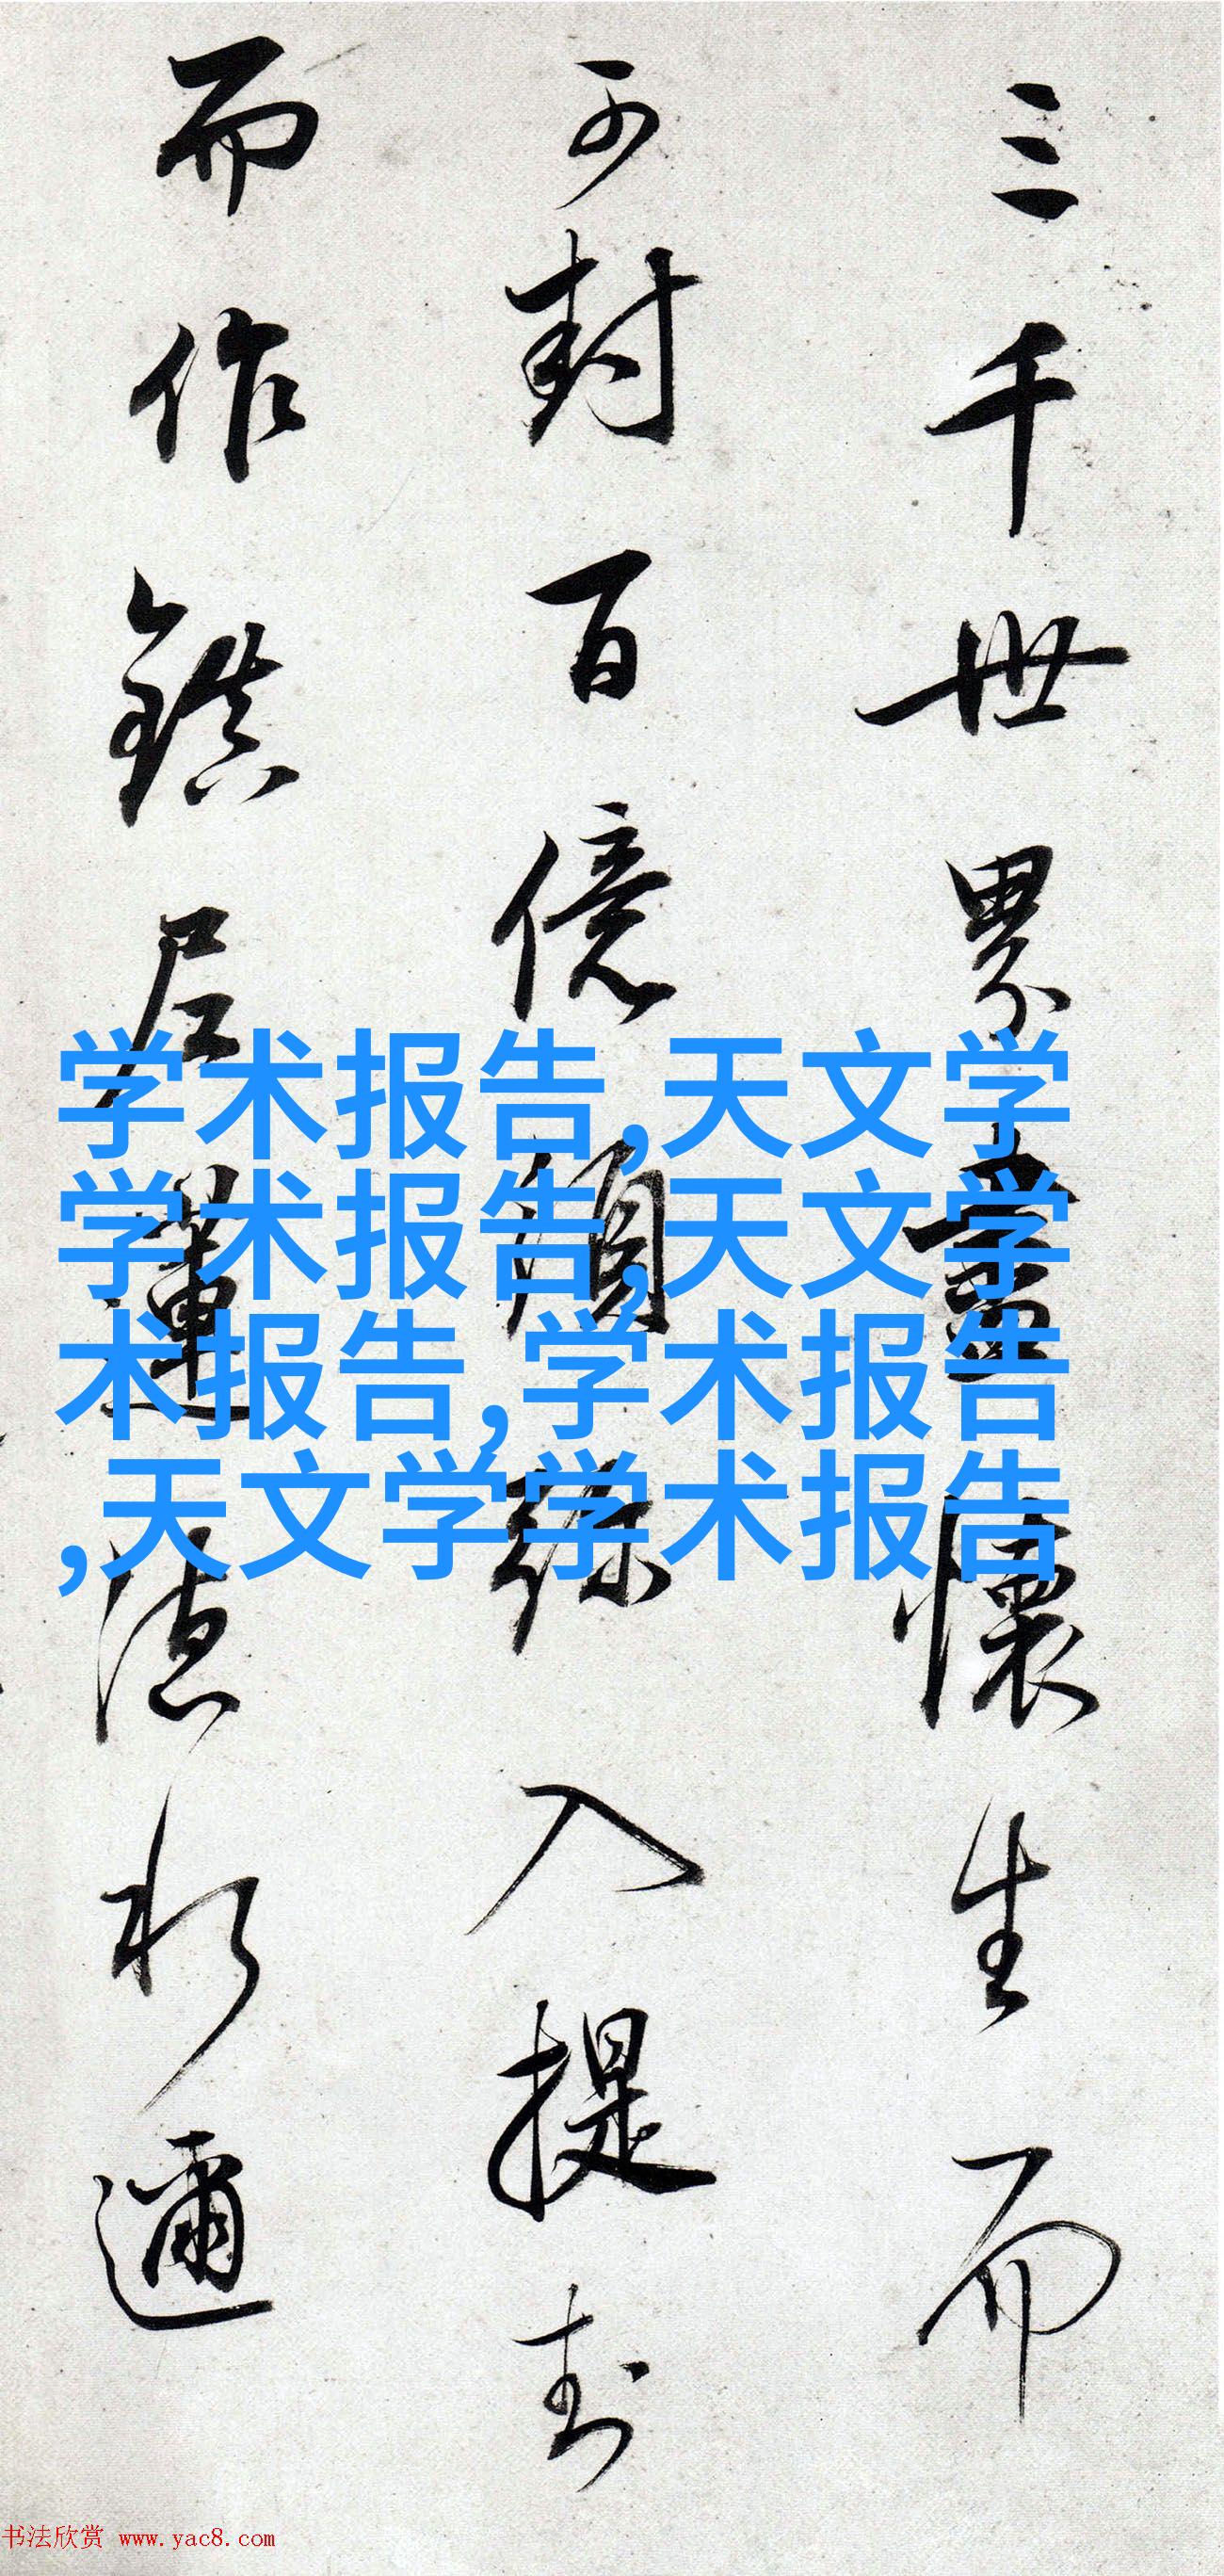 三千世界壹懷生而
可封百億須弥入提封
而作鎮居蓮
於邇
学术报告,天文学
学术报告,天文学学
术报告,学术报告
,天文学学术报告
书法欣赏 www.yac8.com